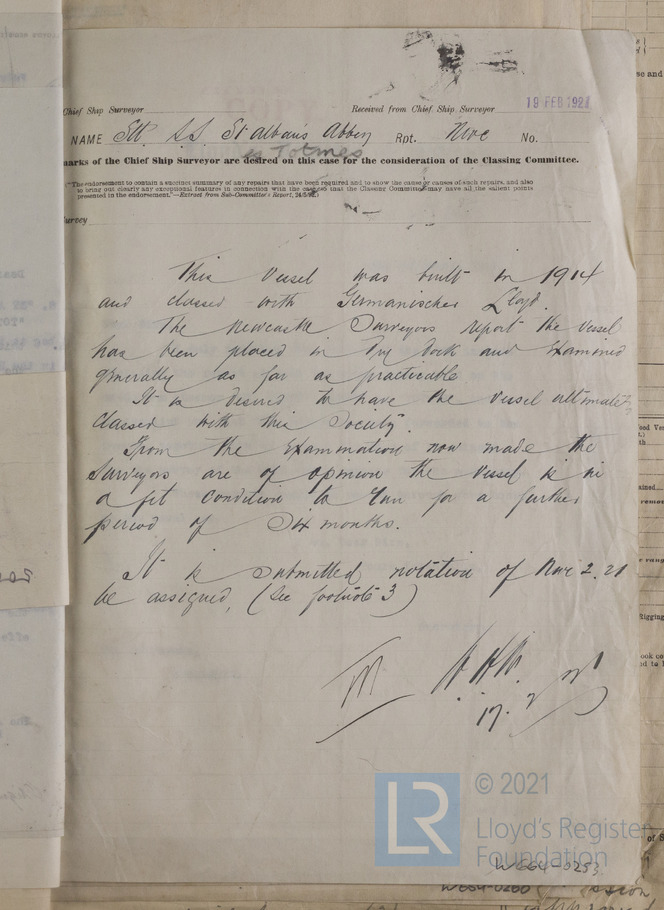 Chief Ship Surveyor
Received from Chief Ship Surveyor
19 FEB 1921
NAME Stl SS St Albans Abbey Rpt. Nwc No.
ex Totmes
marks of the Chief Ship Surveyor are desired on this case for the consideration of the Classing Committee.
"The endorsement to contain a succinct summary of any repairs that have been required and to show the cause or causes of such repairs, and also
to bring out clearly any exceptional features in connection with the case so that the Classing Committee may have all the salient points
presented in the endorsement."—Extract from Sub-Committee's Report,
urvey
This vessel was built in 1914
and classed with Germanischer Lloyd.
The Newcastle Surveyors report the vessel
has been placed in dry dock and examined
generally as far as practicable
It is desired to have the vessel ultimately
classed with this Society.
From the examination now made the
Surveyors are of opinion the vessel is in
a fit condition to run for a further
period of six months.
It is submitted notation of Nwc 2.21
be assigned, (See footnote 3)
17.2
© 2021
LR
Lloyd's Register
Foundation
W664-0253
W664-0260